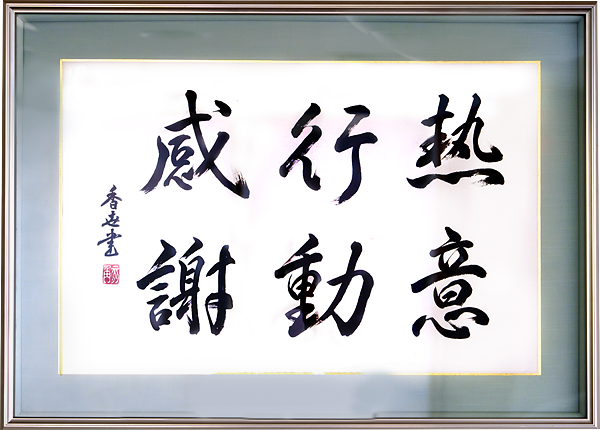 熱意
行動
感謝
香逑書